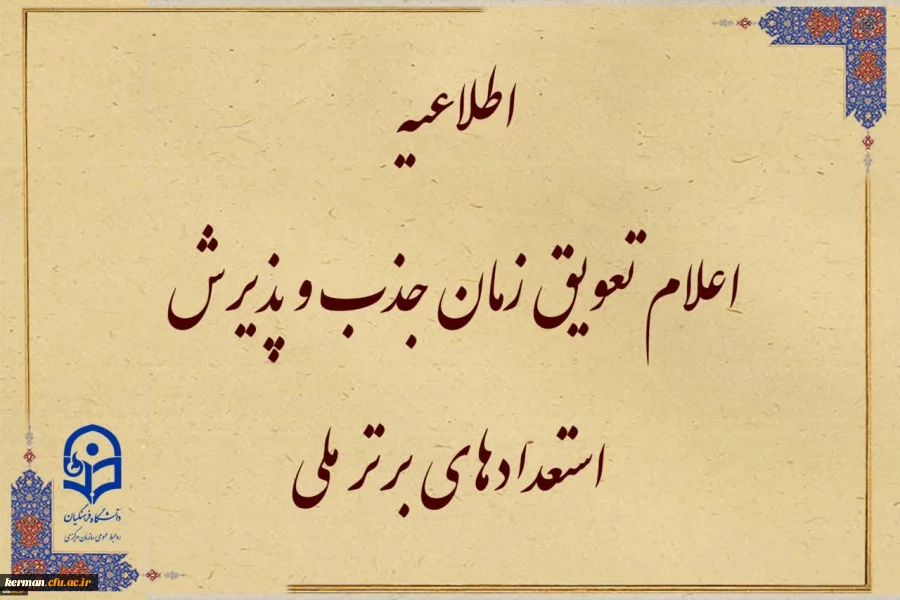 اطلاعیه
اعلام تعویق زمان جذب و پذیرش
استعدادهای برتر ملی
دانشگاه فرهنگیان
روابط عمومی سازمان مرکزی
kerman.cfu.ac.ir